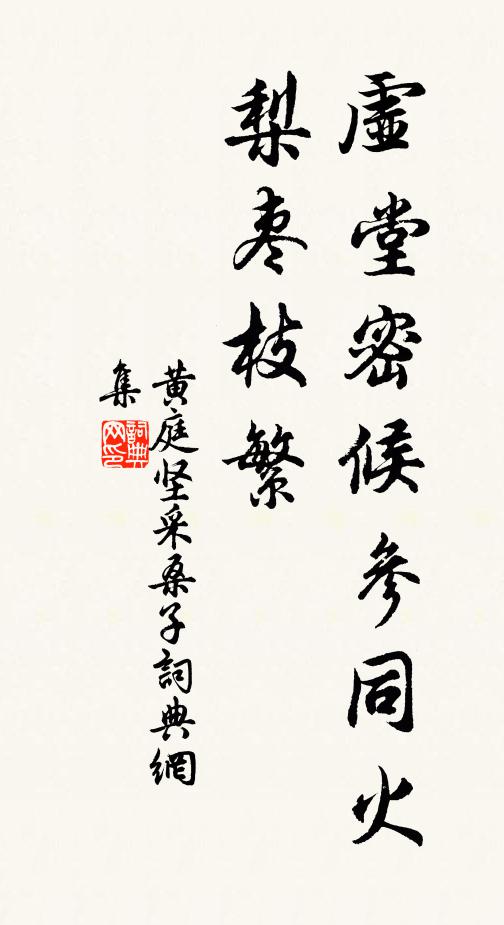 虛堂密候參同火
梨枣枝繁
黄庭坚采桑子詞典網
集
詞典
网印